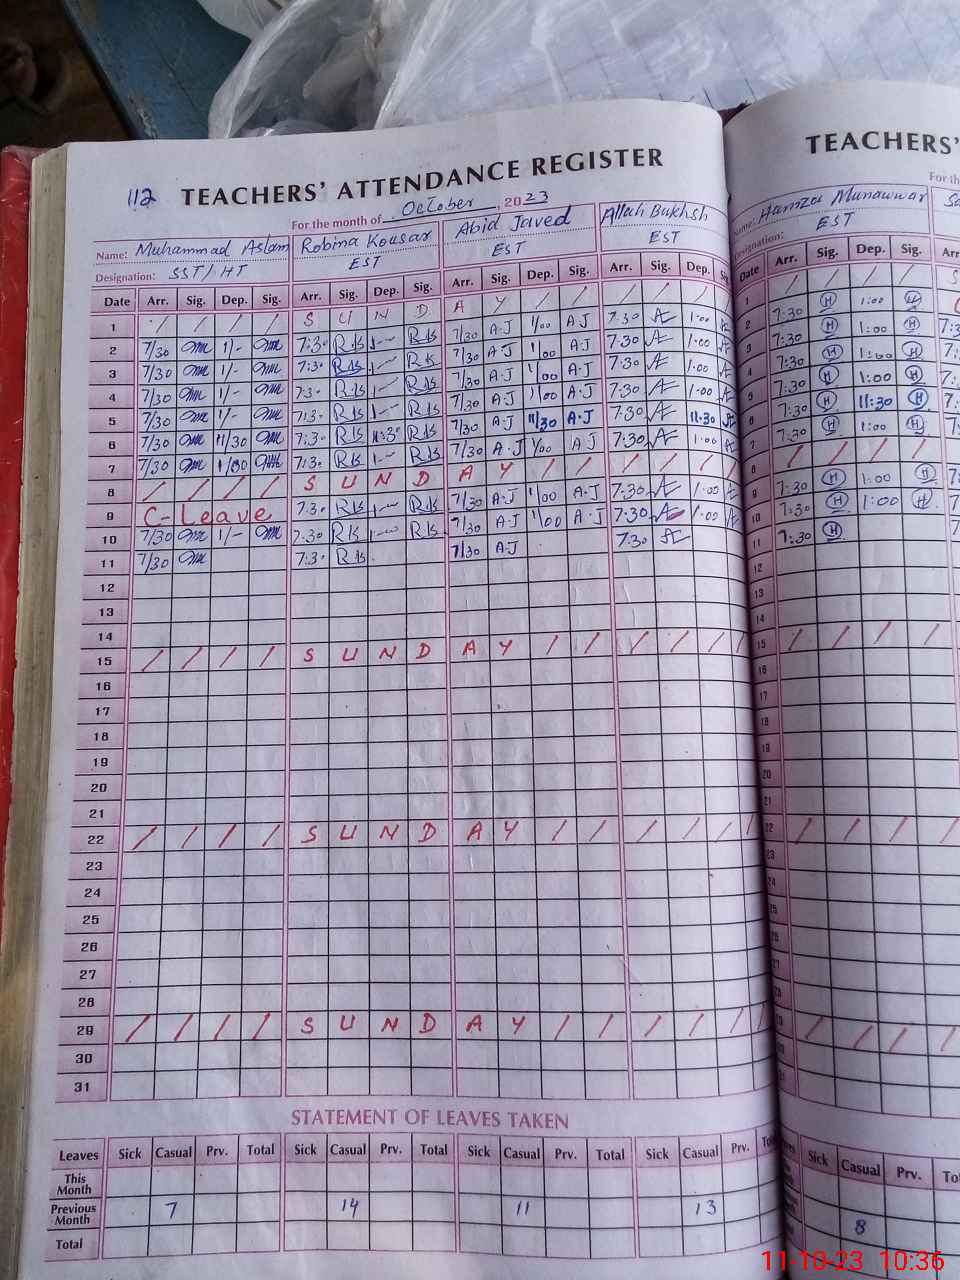 112 TEACHERS' ATTENDANCE REGISTER
For the month of October, 2023
Name: Muhammad Aslam Robina Kousar Abid Javed Allah Bukhsh
Designation: SST/HT EST EST EST
Date Arr. Sig. Dep. Sig. Arr. Sig. Dep. Sig. Arr. Sig. Dep. Sig. Arr. Sig. Dep.
1 / / / / S U N D A Y / / / / /
2 7/30 1/- 7:30 R.K 1- R.K 7/30 A.J 1/00 A J 7.30 1.00
3 7/30 1/- 7:30 R.K 1- R.K 7/30 A.J 1/00 A J 7.30 1.00
4 7/30 1/- 7:30 R.K 1- R.K 7/30 A.J 1/00 A.J 7.30 1.00
5 7/30 1/- 7:30 R.K 1- R.K 7/30 A.J 1/00 A.J 7.30 1.00
6 7/30 11/30 7:30 R.K 11:30 R.K 7/30 A.J 11/30 A.J 7.30 11.30
7 7/30 1/00 7:30 R.K 1- R.K 7/30 A.J 1/00 A J 7.30 1.00
8 / / / / S U N D A Y / / / / /
9 C-Leave 7:30 R.K 1- R.K 7/30 A.J 1/00 A.J 7.30 1.00
10 7/30 1/- 7:30 R.K 1-00 R.K 7/30 A.J 1/00 A.J 7.30 1.00
11 7/30 7:30 R.K 7/30 A.J 7.30
12
13
14
15 / / / / S U N D A Y / / / / / /
16
17
18
19
20
21
22 / / / / S U N D A Y / / / / / /
23
24
25
26
27
28
29 / / / / S U N D A Y / / / / / /
30
31
STATEMENT OF LEAVES TAKEN
Leaves Sick Casual Prv. Total Sick Casual Prv. Total Sick Casual Prv. Total Sick Casual Prv.
This Month
Previous Month 7 14 11 13
Total
TEACHERS'
For the
Name: Hamza Munawwar
Designation: EST
Date Arr. Sig. Dep. Sig.
1 / / / /
2 7:30 H 1:00 H
3 7:30 H 1:00 H
4 7:30 H 1:00 H
5 7:30 H 1:00 H
6 7:30 H 11:30 H
7 7:30 H 1:00 H
8 / / / /
9 7:30 H 1:00 H
10 7:30 H 1:00 H
11 7:30 H
12
13
14
15 / / / /
16
17
18
19
20
21
22 / / / /
23
24
25
26
27
28
Sick Casual Prv.
8
11-10-23 10:36